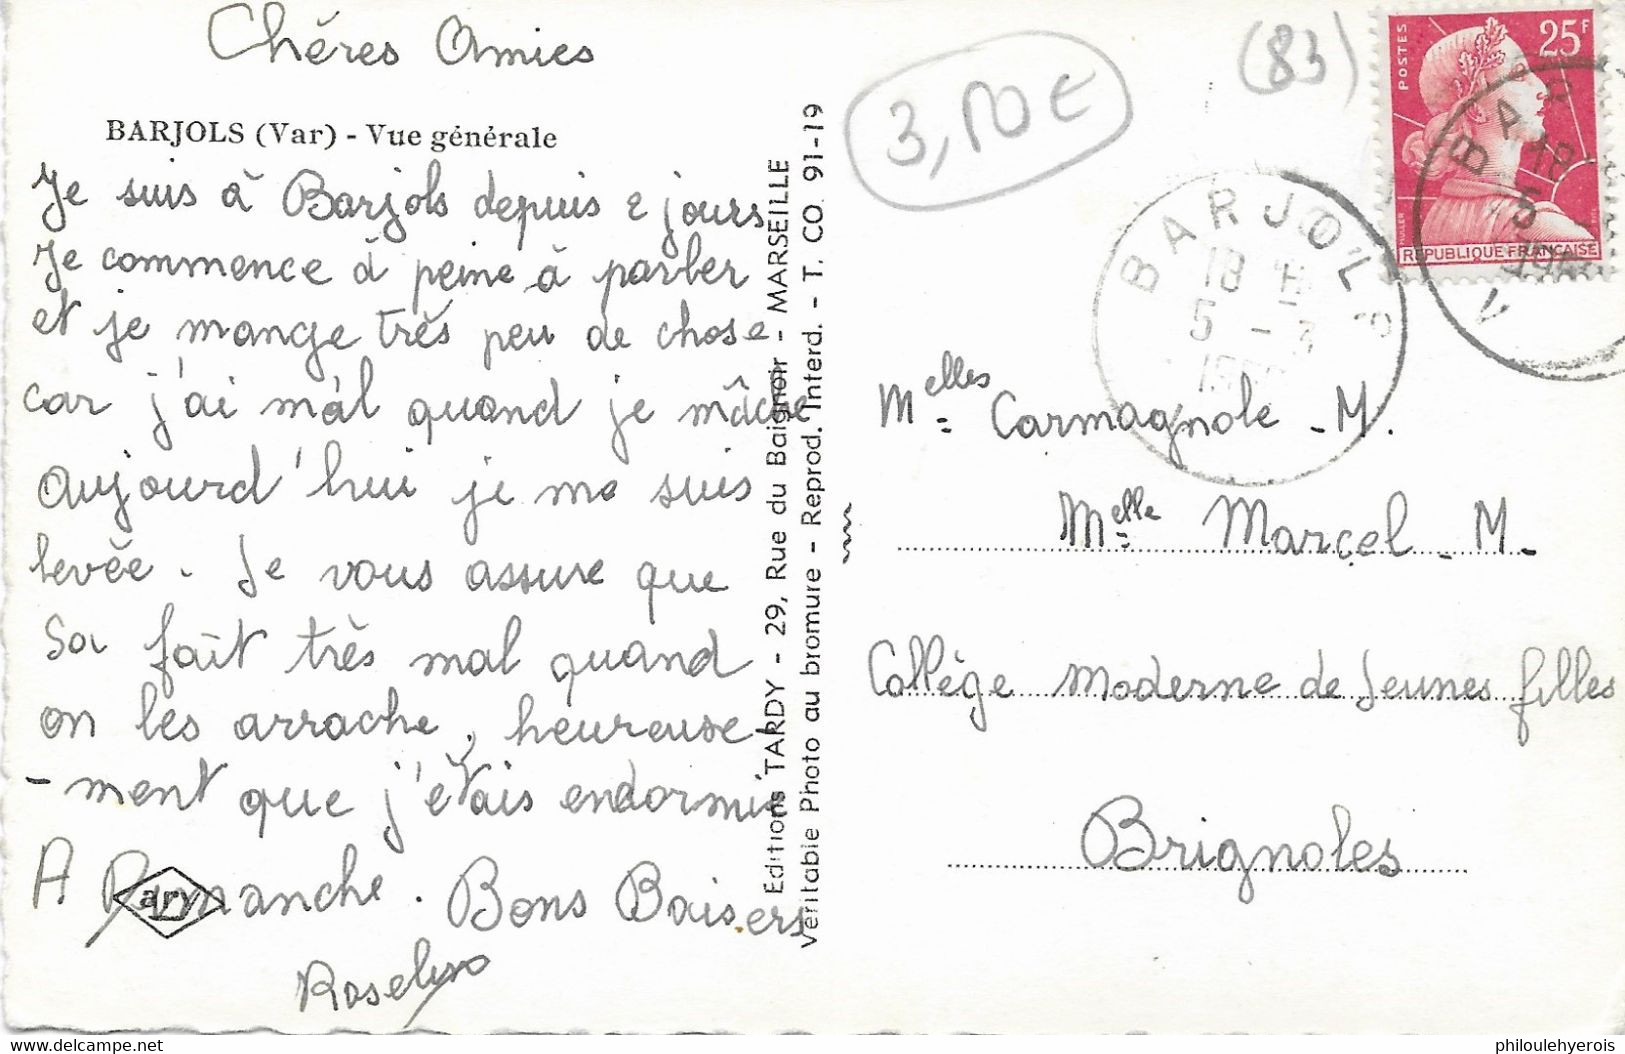 Chéres Amies
BARJOLS (Var) - Vue générale
Je suis à Barjols depuis 2 jours
Je commence à peine à parler
et je mange très peu de chose
car j'ai mal quand je mâche
aujourd'hui je me suis
levée. Je vous assure que
sa fait très mal quand
on les arrache, heureuse
-ment que j'étais endormie
A Dimanche. Bons Baisers
Roselyne
ary
Editions TARDY - 29, Rue du Baignoir - MARSEILLE
Véritable Photo au bromure - Reprod. Interd. - T. CO. 91-19
3,10€
(83)
POSTES
25F
MULLER
REPUBLIQUE FRANÇAISE
BARJOLS
18 H
5 - 3
BAR
18
5
V
Melles Carmagnole - M.
Melle Marcel - M.
Collège Moderne de Jeunes filles
Brignoles
https://www.delcampe.net
philoulehyerois